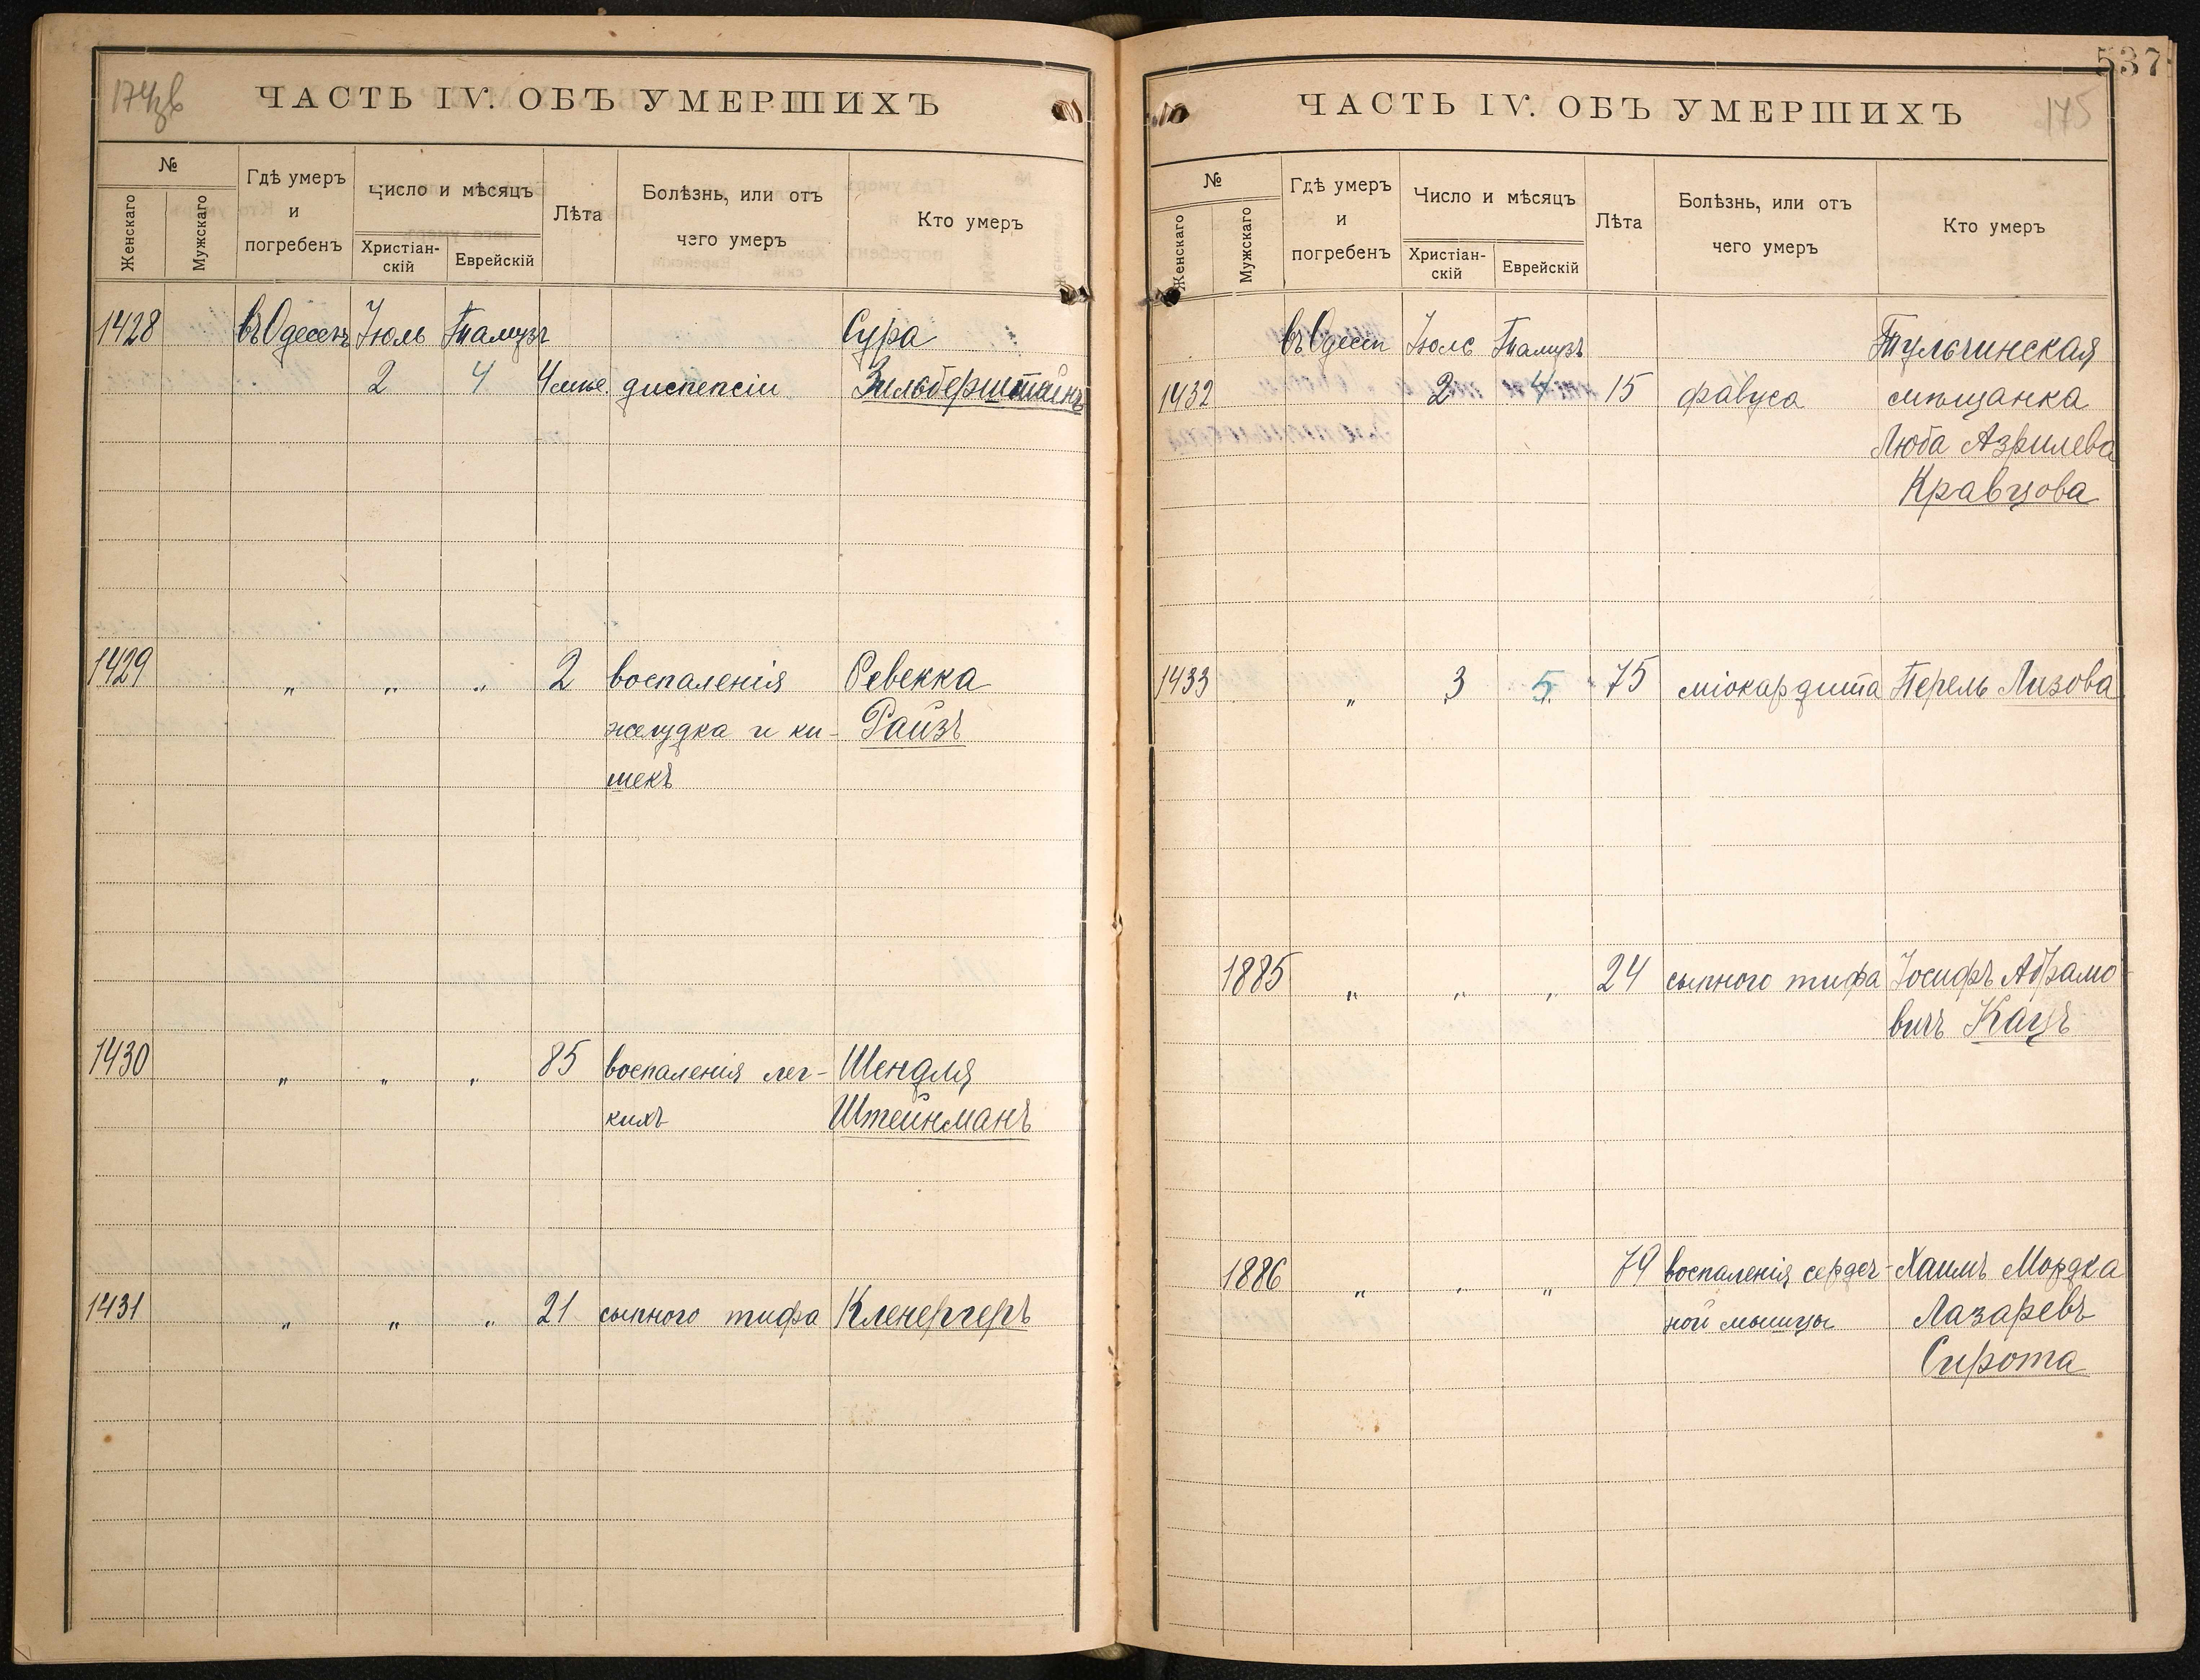 174об
ЧАСТЬ IV. ОБЪ УМЕРШИХЪ
№
Женскаго
Мужскаго
Гдѣ умеръ
и
погребенъ
Число и мѣсяцъ
Христіан-
скій
Еврейскій
Лѣта
Болѣзнь, или отъ
чего умеръ
Кто умеръ
1428 въ Одессѣ Іюль Тамузъ Сура
2 4 4 мѣс. диспепсіи Зильберштейнъ
1429 " " " 2 воспаленія Ревекка
желудка и ки- Райзъ
шекъ
1430 " " " 85 воспаленія лег- Шендля
кихъ Штейнманъ
1431 " " " 21 сыпного тифа Кленергеръ
537
175
ЧАСТЬ IV. ОБЪ УМЕРШИХЪ
№
Женскаго
Мужскаго
Гдѣ умеръ
и
погребенъ
Число и мѣсяцъ
Христіан-
скій
Еврейскій
Лѣта
Болѣзнь, или отъ
чего умеръ
Кто умеръ
въ Одессѣ Іюль Тамузъ Тульчинская
1432 2 4 15 фавуса мѣщанка
Люба Азрилева
Кравцова
1433 " 3 5 75 міокардита Перель Лизова
1885 " " " 24 сыпного тифа Іосифъ Абрамо
вичъ Кацъ
1886 " " " 74 воспаленія сердеч- Хаимъ Мордка
ной мышцы Лазаревъ
Сирота